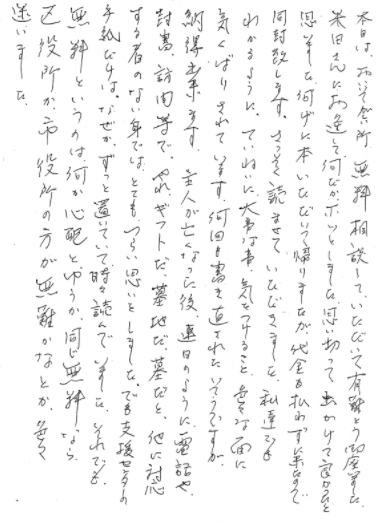 本日は、おいそがしい所 無料相談して、いただいて有難とう御座いました。
米田さんにお逢して何だかホッとしました。思い切って 出かけて良かったと
思いました。何げに本いただいて帰りましたが代金も払わずに来たので
同封致します。さっそく読ませていただきました。私達でも
わかるように、ていねいに、大事な事、気をつけること、色々な面に
気くばりされています。何回も書き直されたそうですが
納得出来ます。主人が亡くなった後、連日のように電話や、
封書、訪問等で、やれ、ギフトだ、墓地だ、墓だと、他に対応
する者のない身では、とても、つらい思いをしました。でも支援センターの
手紙だけは、なぜか、ずっと置いていて時々読んでいました。それでも、
無料というのは何か心配とゆうか、同じ無料なら
区役所か市役所の方が無難かなとか、色々
迷いました。